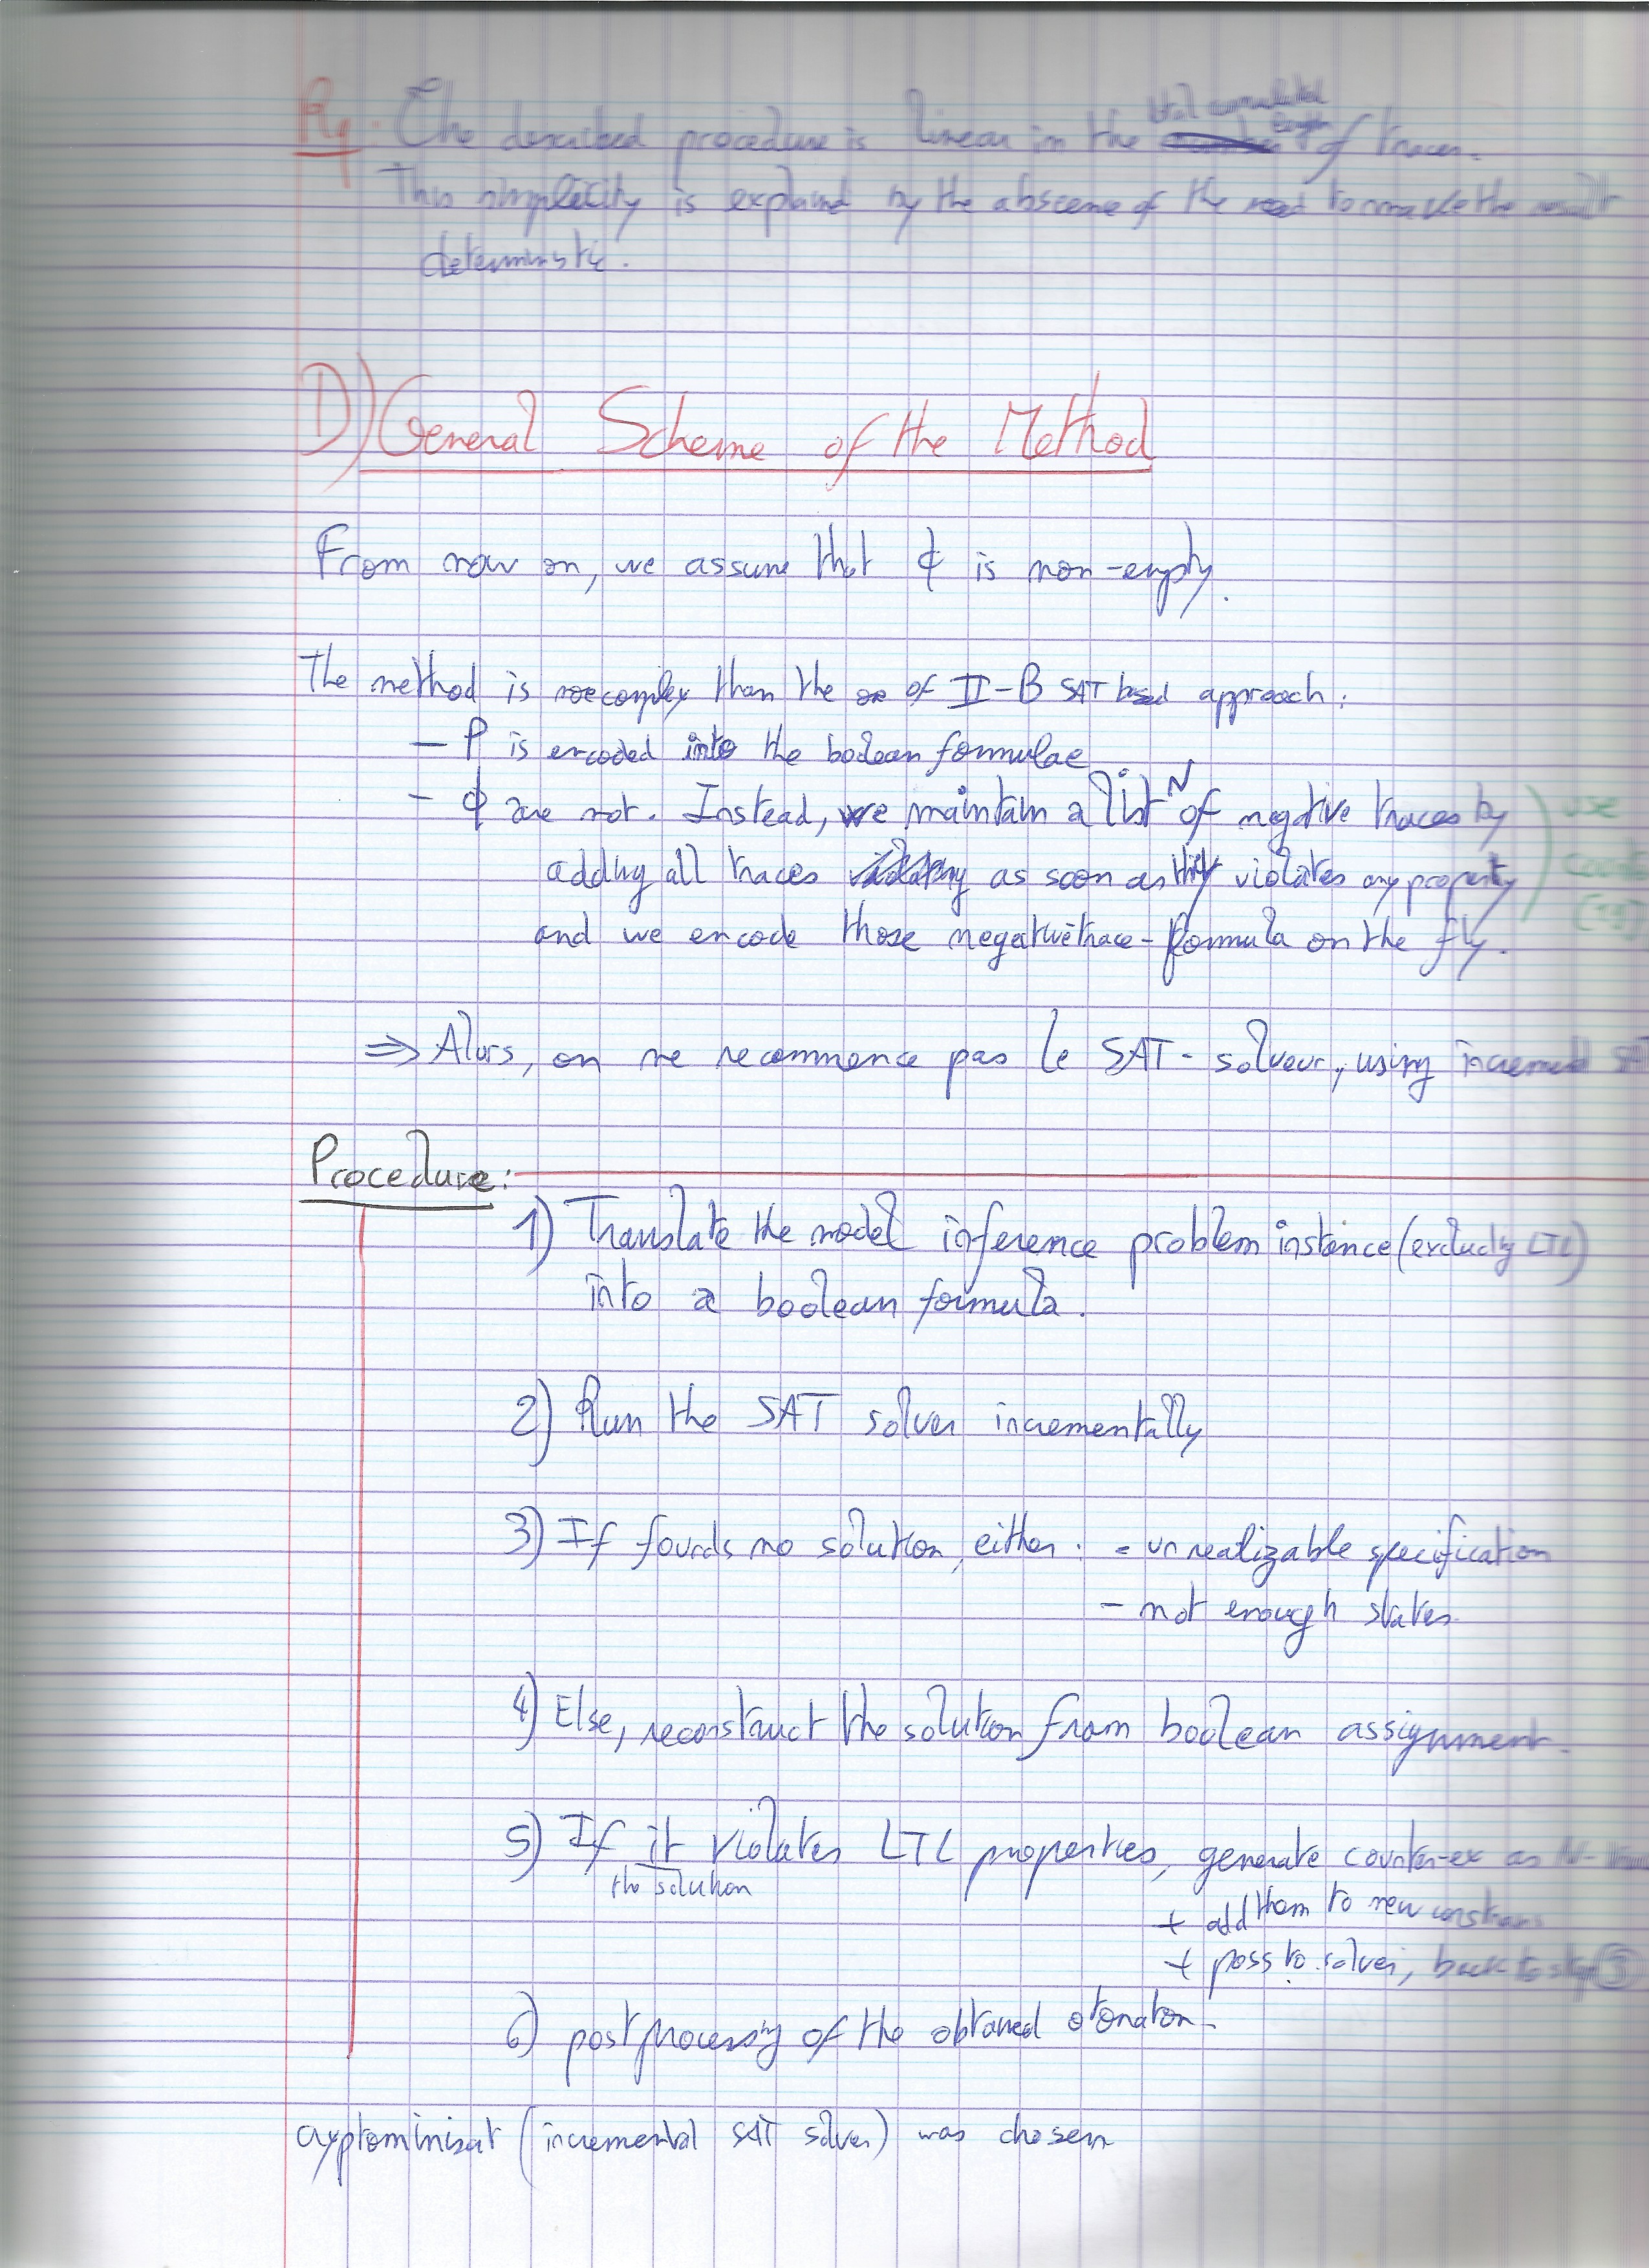 Rq. The described procedure is linear in the total cumulated length of traces.
This simplicity is explaind by the abscence of the need to make the result
deterministic.
D) General Scheme of the Method
From now on, we assume that ϕ is non-empty.
The method is more complex than the one of II-B SAT based approach:
- P is encoded into the boolean formulae
- ϕ are not. Instead, we maintain a list N of negative traces by
adding all traces as soon as they violates any property
and we encode those negative trace - formula on the fly.
use
⇒ Alors, on ne recommence pas le SAT-solveur, using incremental
Procedure:
1) Translate the model inference problem instance (excluding LTL)
into a boolean formula.
2) Run the SAT solver incrementally
3) If founds no solution, either: - unrealizable specification
- not enough states
4) Else, reconstruct the solution from boolean assignment.
5) If it violates LTL properties, generate counter-ex as N-
the solution
+ add them to new constrains
+ pass to solver, back to step 3
6) postprocessing of the obtained otonaton.
cryptominisat (incremental SAT solver) was chosen